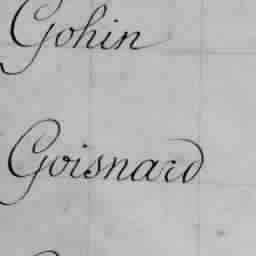 Gohin
Goisnard